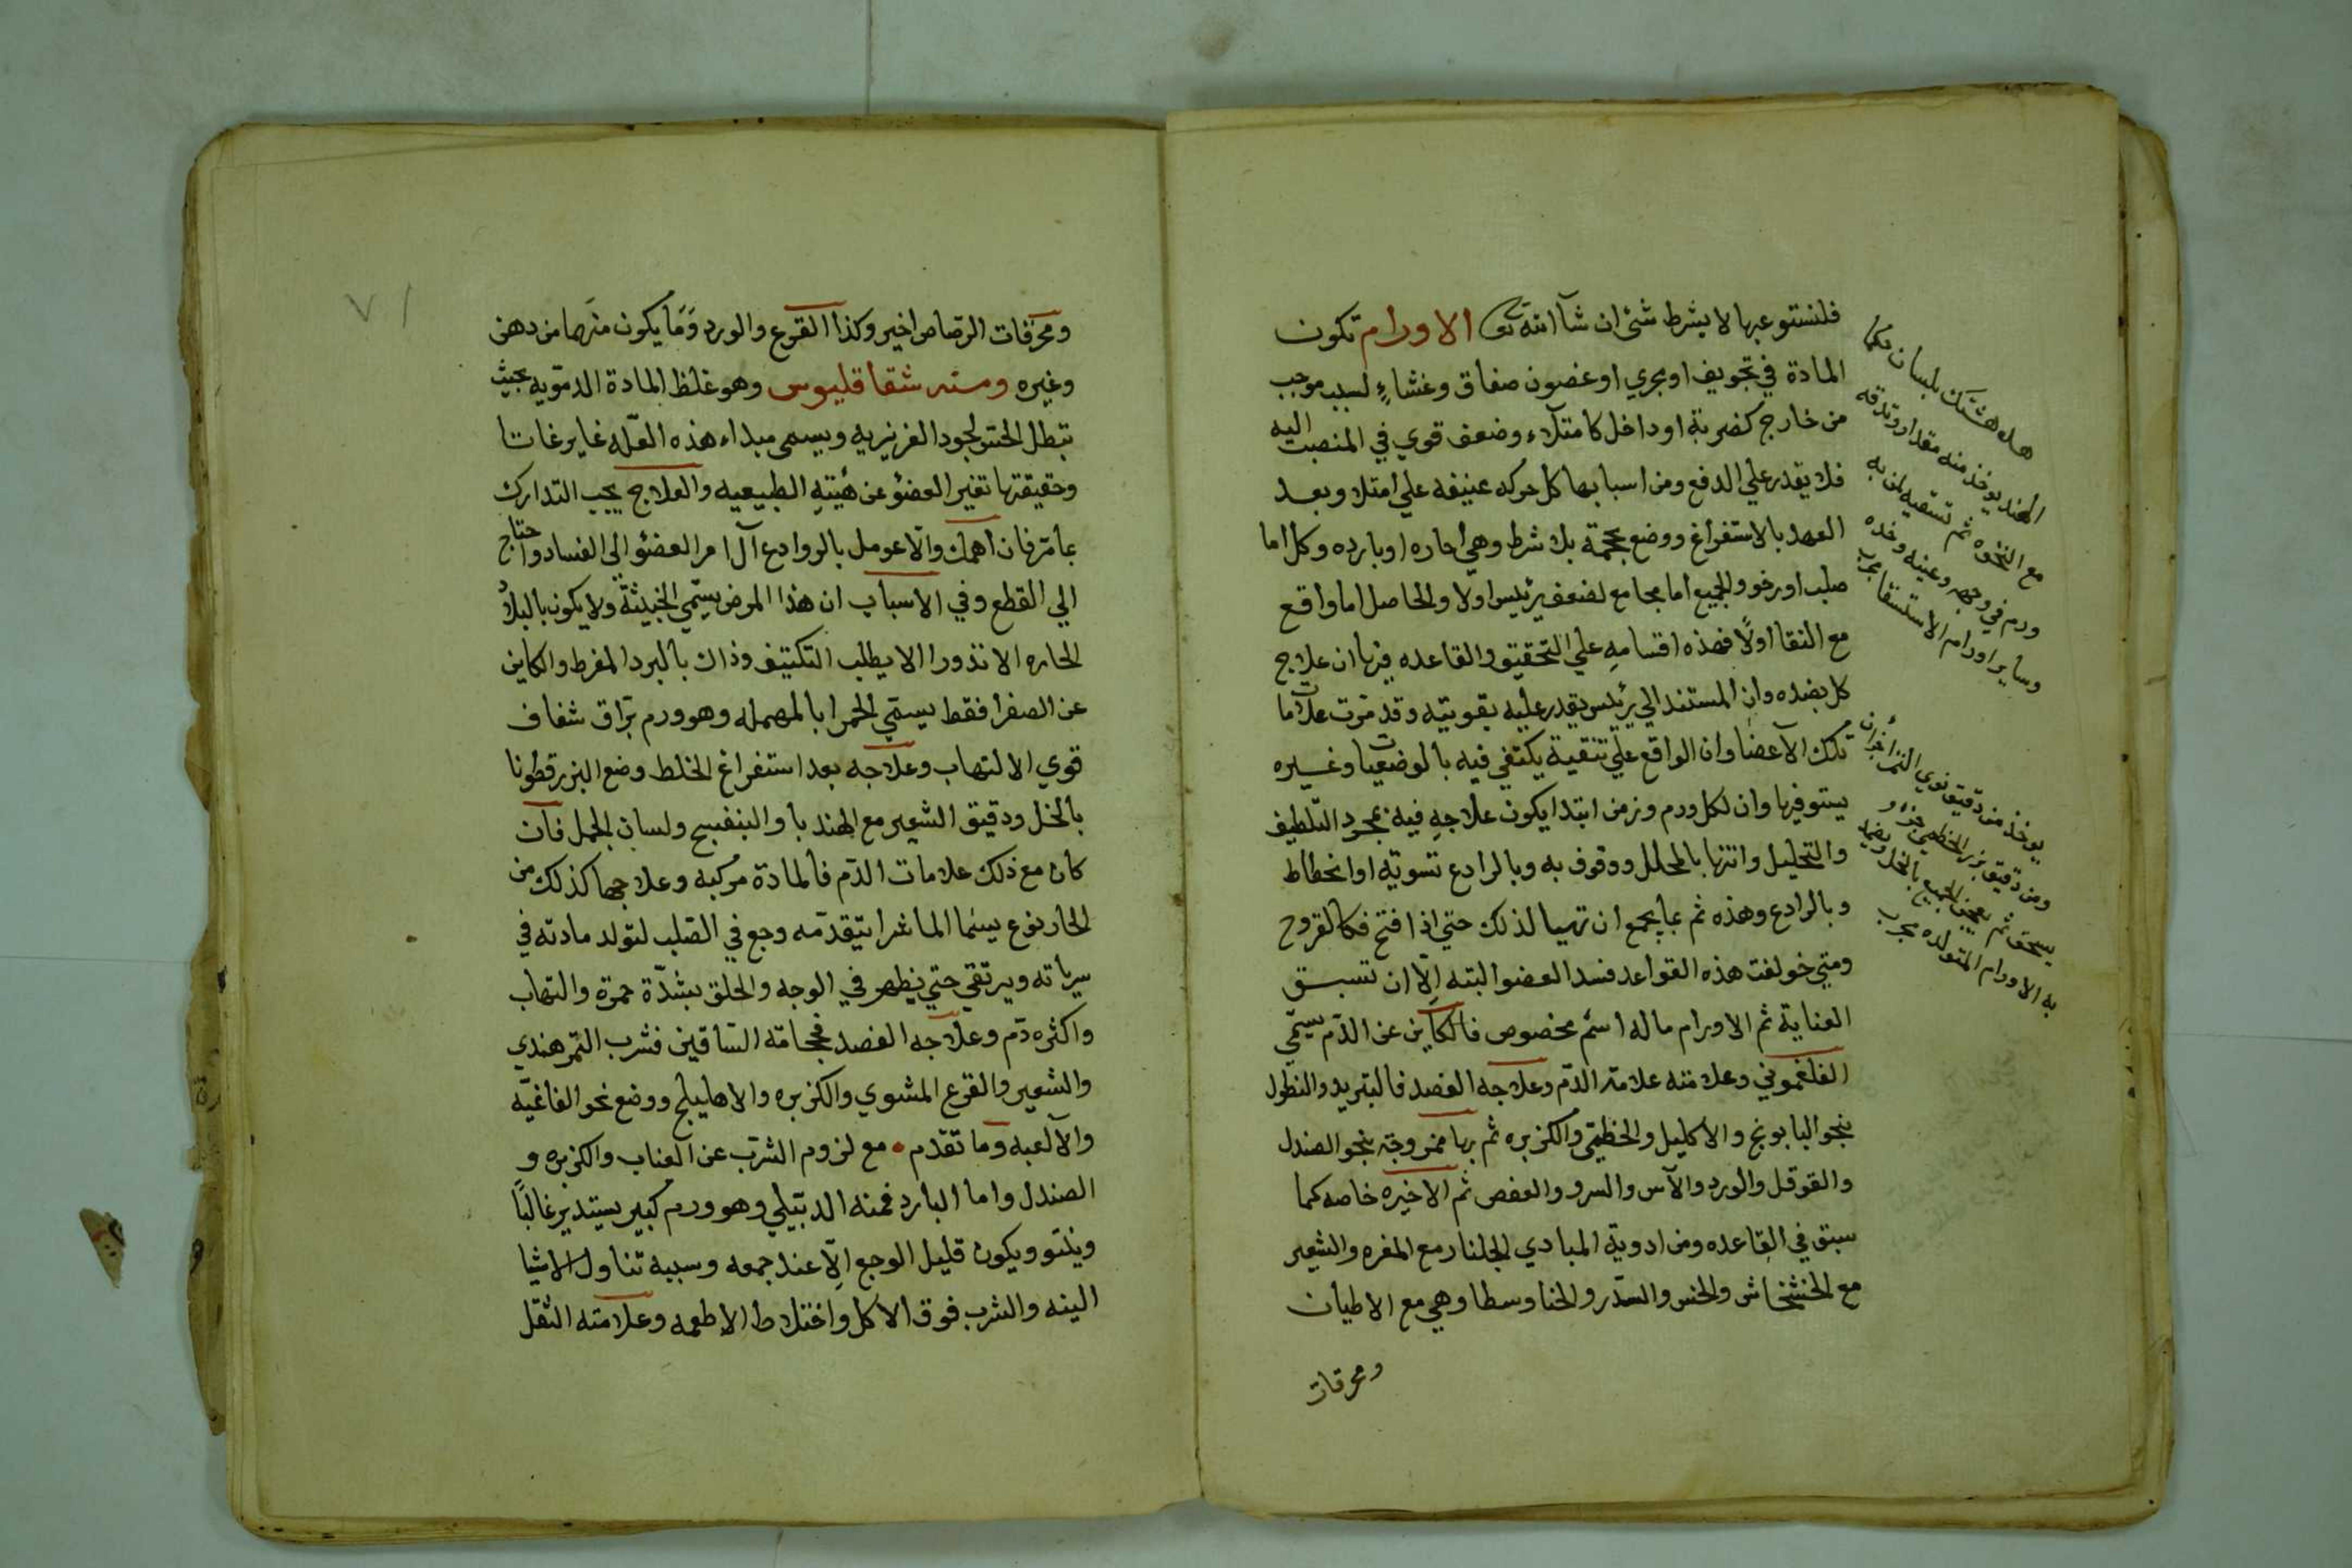 فلنستوعبها لا بشرط شئ ان شآ الله تعالى الاورام تكون
المادة في تجويف او مجري او غضون صفاق وغشاءٍ لسبب موجب
من خارج كضربة او داخل كامتلاء وضعف قوي في المنصب اليه
فلا يقدر علي الدفع ومن اسبابها كل حركه عنيفه علي امتلا وبعد
العهد بالاستفراغ ووضع محجمة بلا شرط وهي احاره او بارده وكل اما
صلب او رخو والجميع اما مجامع لضعف رئيس اولا والحاصل اما واقع
مع النقا اولًا فهذه اقسامه علي التحقيق والقاعده فيها ان علاج
كل بضده وان المستند الي رئيس يقدر عليه بقويته وقد مرت علامات
تلك الآعضا وان الواقع علي تنقية يكتفي فيه بالوضعيات وغيره
يستوفيها وان لكل ورم وزمن ابتدا يكون علاجه فيه بمجرد التلطيف
والتحليل وانتها بالمحلل ووقوف به وبالرادع تسويته او انحطاط
وبالرادع وهذه ثم بما يجمع ان تهيا لذلك حتي اذا فتح فكالقروح
ومتي خولفت هذه القواعد فسد العضو البته الّا ان تسبق
العناية ثم الاورام ماله اسم مخصوص فالكاين عن الدم يسمّي
الفلغموني وعلامته علامة الدم وعلاجه الفصد فالتبريد والنطول
بنحو البابونج والاكليل والخطمي والكزبره ثم بها ممزوجة بنحو الصندل
والفوفل والورد والآس والسرو والعفص ثم الاخيره خاصه كما
سبق في القاعده ومن ادوية المبادي الجلنار مع المغره والشعير
مع الخشخاش والخس والسدر والحنا وسطا وهي مع الاطيان
ومحرقات
هله هشتك بلسان حكما
الهند يوخذ منه مقدار وتدقه
مع النخوه ثم تسقيه لمن به
ورم في وجهه وعينيه وخده
وساير اورام الاستسقا مجرب
يوخذ من دقيق نوي التمر جزان
ومن دقيق بزر الخطمي جزء و
يسحق ثم يعجن الجميع بالخل ويضمد
به الاورام المتولده مجرب
٧١
ومحرقات الرصاص اخير وكذا القرع والورد وَمَا يكون منهما من دهن
وغيره ومنه شقاقليوس وهو غلظ المادة الدمويه بحيث
تبطل الحس لجود الغريزيه ويسمي مبداء هذه العله غايرغاتا
وحقيقتها تغير العضو عن هيئته الطبيعيه والعلاج يجب التدارك
بما مر فان اهمل والّا عومل بالروادع آل امر العضو الي الفساد واحتاج
الي القطع وفي الاسباب ان هذا المرض يسمّي الخبيثة ولا يكون بالبلاد
الحاره الا نذورا الا يطلب التكثيف وذاك بالبرد المفرط والكاين
عن الصفرا فقط يسمّي الحمرا بالمهمله وهو ورم برّاق شفاف
قوي الالتهاب وعلاجه بعد استفراغ الخلط وضع البزر قطونا
بالخل ودقيق الشعير مع الهندبا والبنفسج ولسان الحمل فان
كان مع ذلك علامات الدم فالمادة مركبه وعلاجها كذلك من
الحار نوع يسما الماشرا يتقدمه وجع في الصلب لتولد مادته في
سرياته ويرتقي حتي يظهر في الوجه والحلق بشدّة حمرة والتهاب
واكثره دم وعلاجه الفصد فحجامة الساقين فشرب التمر هندي
والشعير والقرع المشوي والكزبره والاهليلج ووضع نحو الفاغيه
والآلعبه وما تقدم • مع لزوم الشرب عن العناب والكزبره و
الصندل واما البارد فمنه الدبيلي وهو ورم كبير يستدير غالبًا
وينتو ويكون قليل الوجع الّا عند جمعه وسببه تناول الاشيا
الينه والشرب فوق الاكل واختلاط الاطعمه وعلامته الثقل